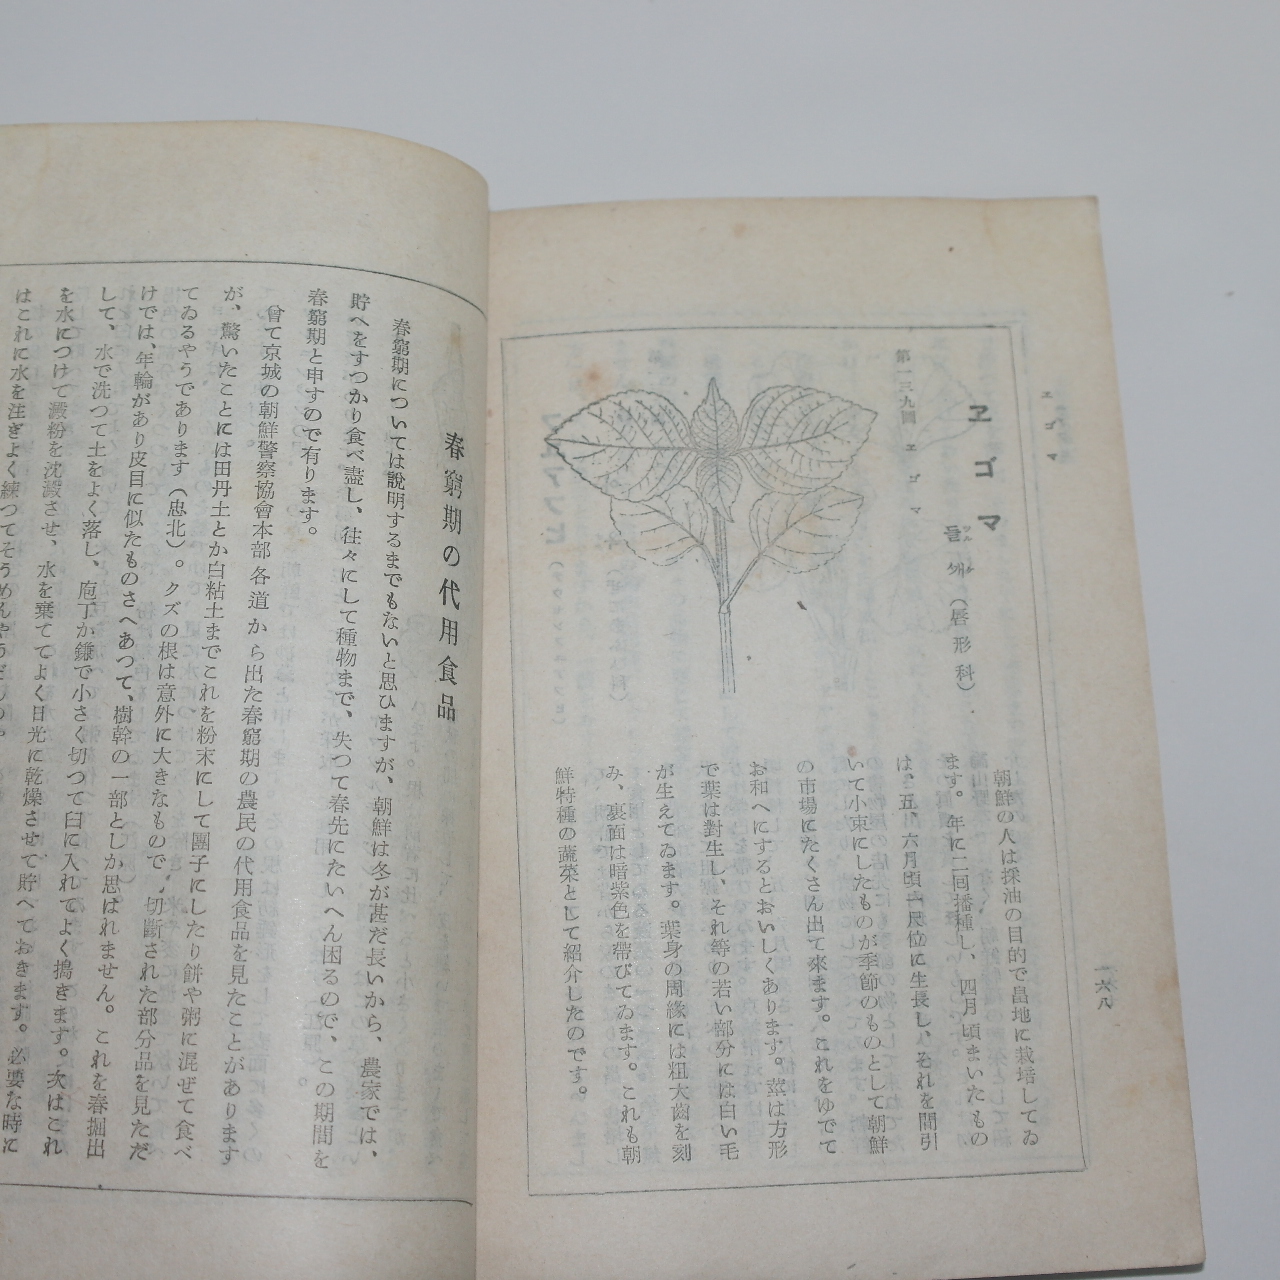 エゴマ
一六八
ヱゴマ 들깨 (唇形科)
ツルケ
第一三九圖 ヱゴマ
朝鮮の人は採油の目的で畠地に栽培してゐ
ます。年に二回播種し、四月頃まいたもの
は、五、六月頃一尺位に生長し、それを間引
いて小束にしたものが季節のものとして朝鮮
の市場にたくさん出て來ます。これをゆでて
お和へにするとおいしくあります。莖は方形
で葉は對生し、それ等の若い部分には白い毛
が生えてゐます。葉身の周緣には粗大齒を刻
み、裏面は暗紫色を帶びてゐます。これも朝
鮮特種の蔬菜として紹介したのです。
春窮期の代用食品
春窮期については說明するまでもないと思ひますが、朝鮮は冬が甚だ長いから、農家では、
貯へをすつかり食べ盡し、往々にして種物まで、失つて春先にたいへん困るので、この期間を
春窮期と申すので有ります。
曾て京城の朝鮮警察協會本部各道から出た春窮期の農民の代用食品を見たことがあります
が、驚いたことには田丹土とか白粘土までこれを粉末にして團子にしたり餅や粥に混ぜて食べ
てゐるやうであります(忠北)。クズの根は意外に大きなもので、切斷された部分品を見ただ
けでは、年輪があり皮目に似たものさへあつて、樹幹の一部としか思はれません。これを春掘出
して、水で洗つて土をよく落し、庖丁か鎌で小さく切つて臼に入れてよく搗きます。次はこれ
を水につけて澱粉を沈澱させ、水を棄ててよく日光に乾燥させて貯へておきます。必要な時に
はこれに水を注ぎよく練つてそうめんやうどんの